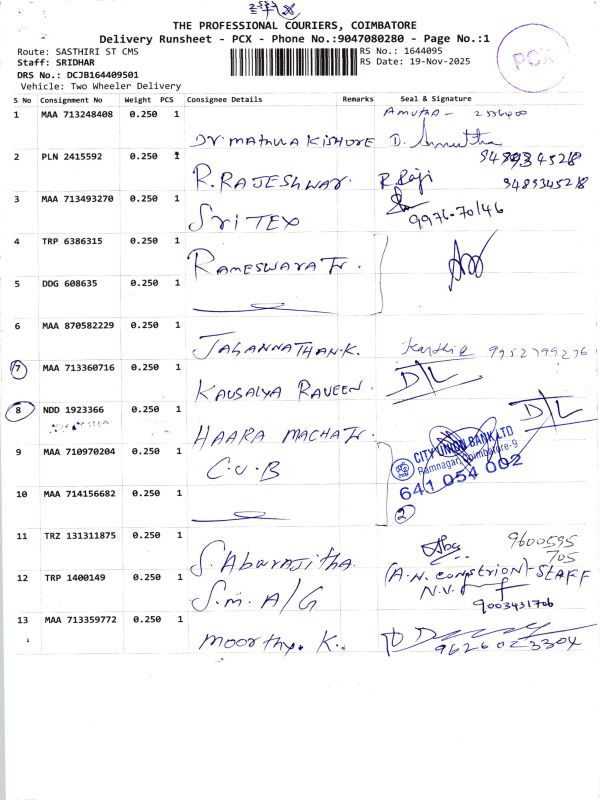 THE PROFESSIONAL COURIERS, COIMBATORE
Delivery Runsheet - PCX - Phone No.:9047080280 - Page No.:1
Route: SASTHIRI ST CMS
RS No.: 1644095
Staff: SRIDHAR
RS Date: 19-Nov-2025
DRS No.: DCJB164409501
Vehicle: Two Wheeler Delivery
PCX
S No Consignment No Weight PCS Consignee Details Remarks Seal & Signature
1 MAA 713248408 0.250 1 Dr. MATHULA KISHORE
Amutha -
D. Amutha
2 PLN 2415592 0.250 1 R. RAJESHWARI
R Raji 9489345218
3 MAA 713493270 0.250 1 SRI TEX
9976-70146
4 TRP 6386315 0.250 1 RAMESWARA Tr.
5 DDG 608635 0.250 1
6 MAA 870582229 0.250 1 JAGANNATHAN.K.
Karthik 9952799276
7 MAA 713360716 0.250 1 KAUSALYA RAVEEN.
D/L
8 NDD 1923366 0.250 1 HAARA MACHA Tr.
D/L
9 MAA 710970204 0.250 1 C.U.B
CITY UNION BANK LTD
Ramnagar, Coimbatore-9
641 054 002
2
10 MAA 714156682 0.250 1
11 TRZ 131311875 0.250 1 S. Abarajitha.
9600595
705
12 TRP 1400149 0.250 1 S.M. A/G
(A.N. )-STAFF
N.V.
9003431706
13 MAA 713359772 0.250 1 Moorthy. K.
9626023304